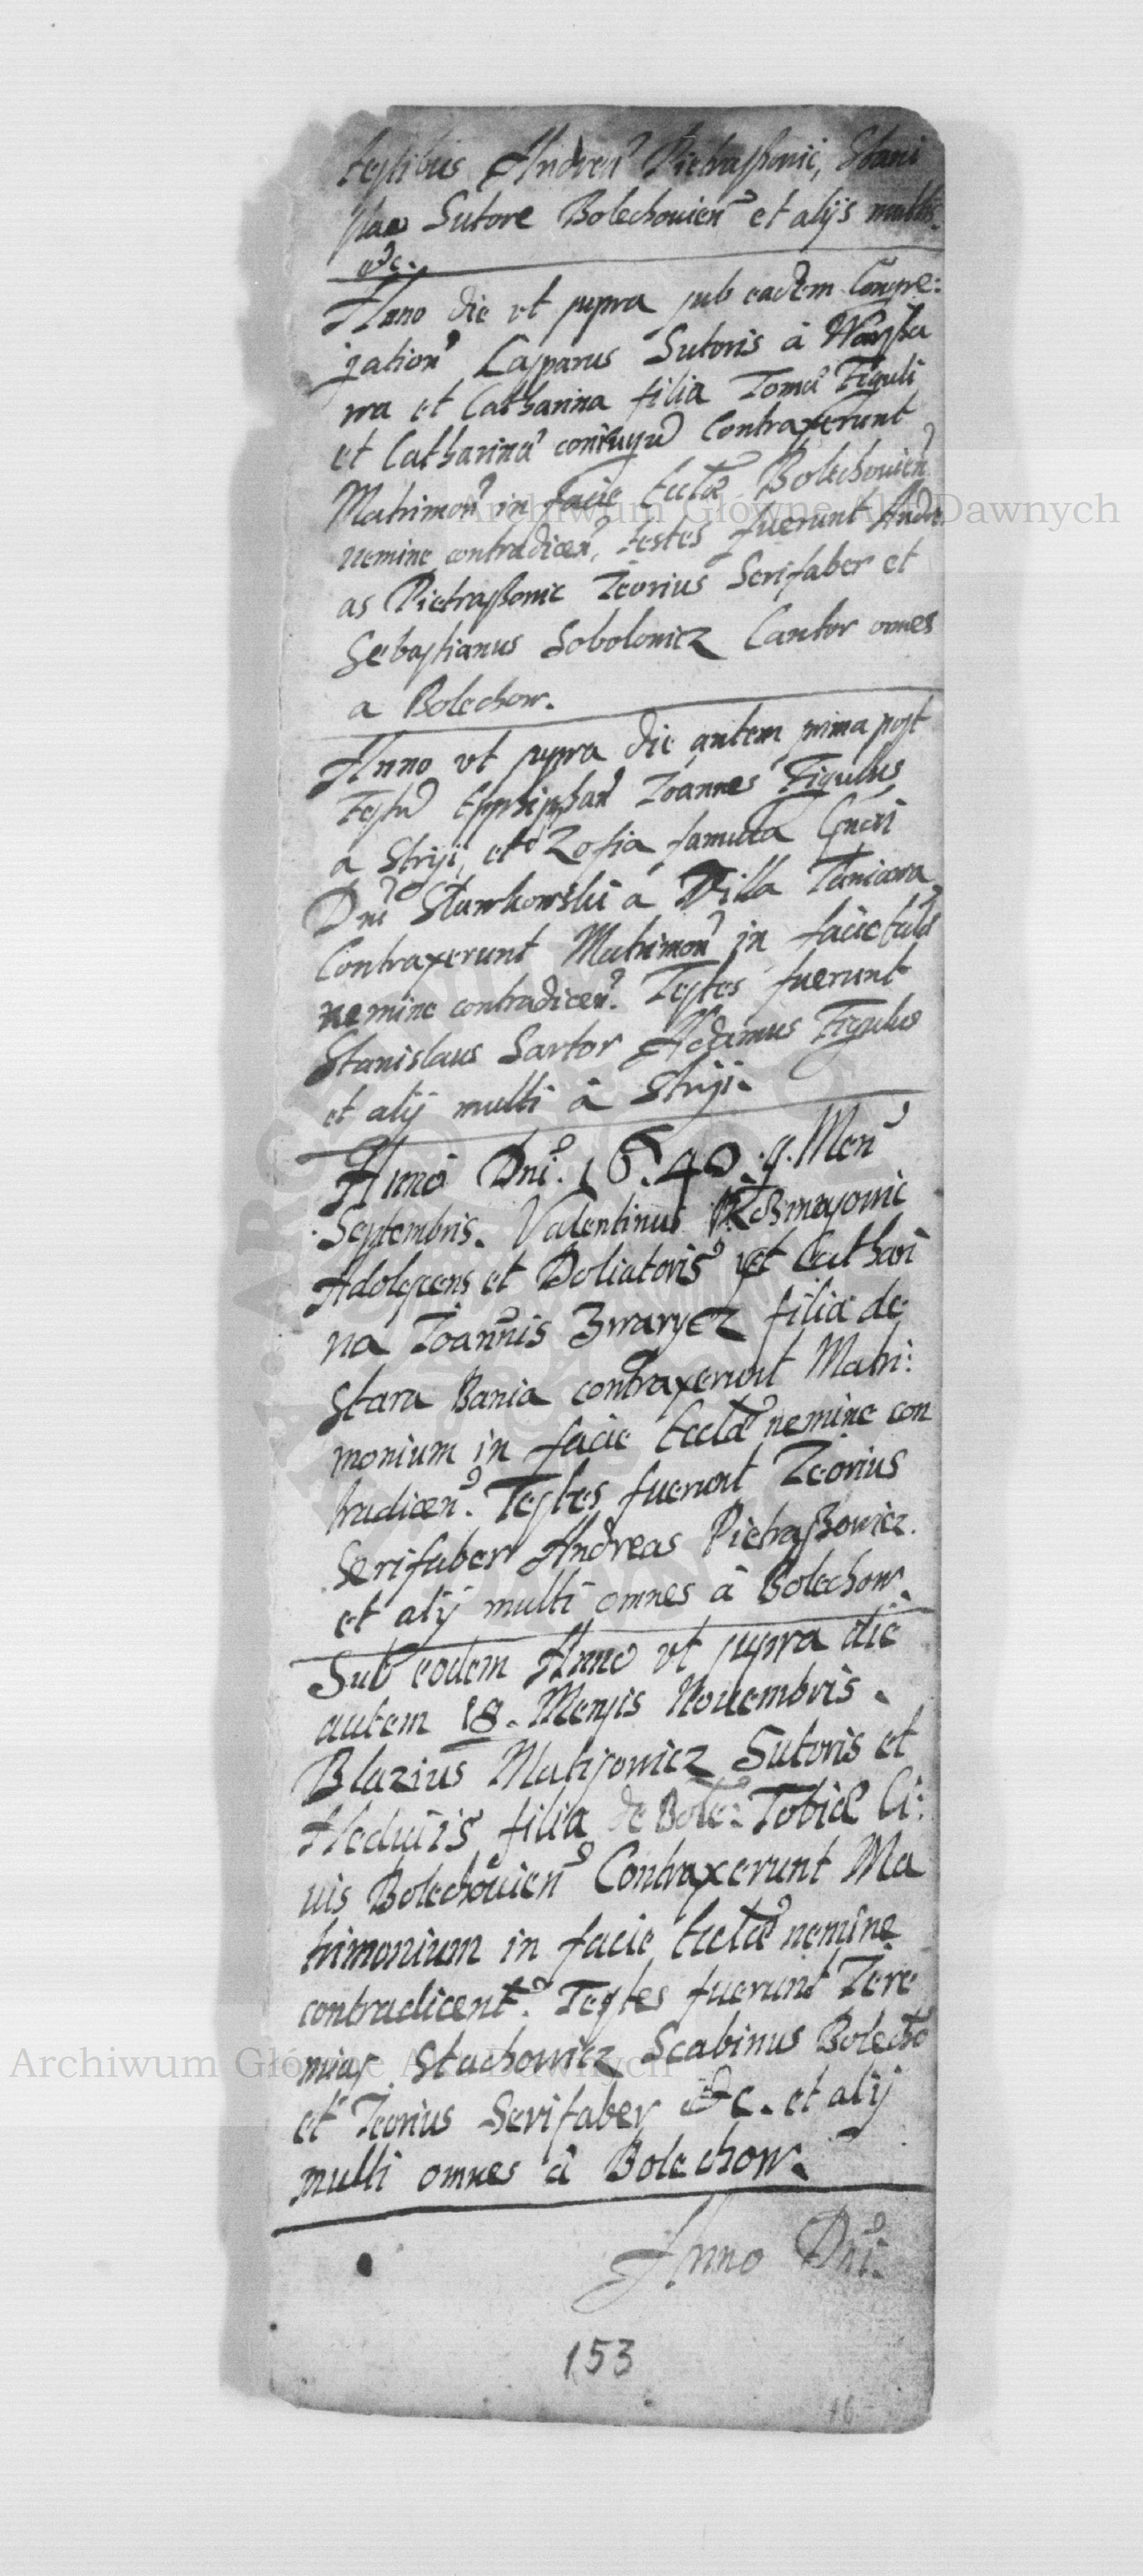 testibus Andrea Pietraszowic, Stani
slao Sutore Bolechouien et alijs multis
etc.
Anno die vt supra sub eadem Congre:
gation Casparus Sutoris à
wa et Catharina filia Toma Figuli
et Catharina coniugu Contraxerunt
Matrimon in facie Eccla Bolechouien
nemine contradicen, testes fuerunt Andre
as Pietraszowic Zeorius Serifaber et
Sebastianus Sobolowicz Cantor omnes
a Bolechow.
Anno vt supra die autem prima post
Festu Epphiphan Joannes Figulus
a Stryi, et Zofia famula Gnosi
Dni Sławkowski a Villa Taniawa
Contraxerunt Matrimon in facie Eccla
nemine contradicen. Testes fuerunt
Stanislaus Sartor Adamus Figulus
et alij multi à Stryi.
Anno Dni. 1640. 9. Men
Septembris. Valentinus
Adolescens et Doliatoris et Cathari
na Joannis Zwarycz filia de
Stara Bania contraxerunt Matri:
monium in facie Eccla nemine con
tradicen. Testes fuerunt Zeorius
Serifaber Andreas Pietraszowicz.
et alij multi omnes à Bolechow.
Sub eodem Anno vt supra die
autem 18. Mensis Nouembris.
Blazius Matisowicz Sutoris et
Heduis filia de Bole: Tobiæ Ci:
uis Bolechouien Contraxerunt Ma
trimonium in facie Eccla nemine
contradicent. Testes fuerunt Jere
mias Stachowicz Scabinus Bolecho
et Zeorius Serifaber &c. et alij
multi omnes à Bolechow.
Anno Dni.
153
16
Archiwum Główne Akt Dawnych
Archiwum Główne Akt Dawnych